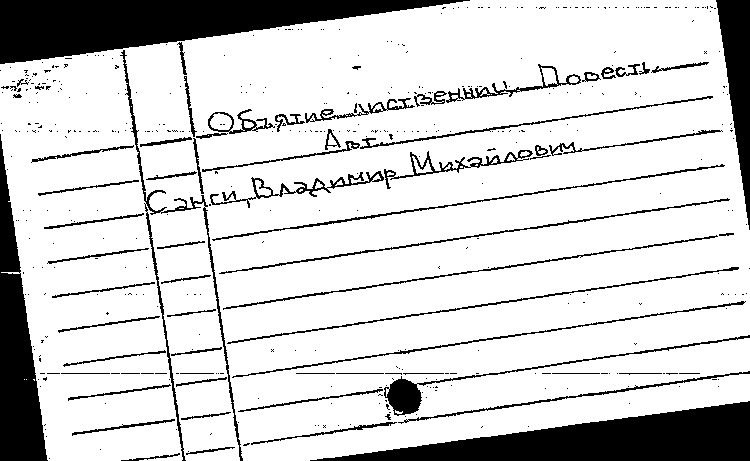 Объятие лиственниц. Повесть.
Авт.:
Санги, Владимир Михайлович.